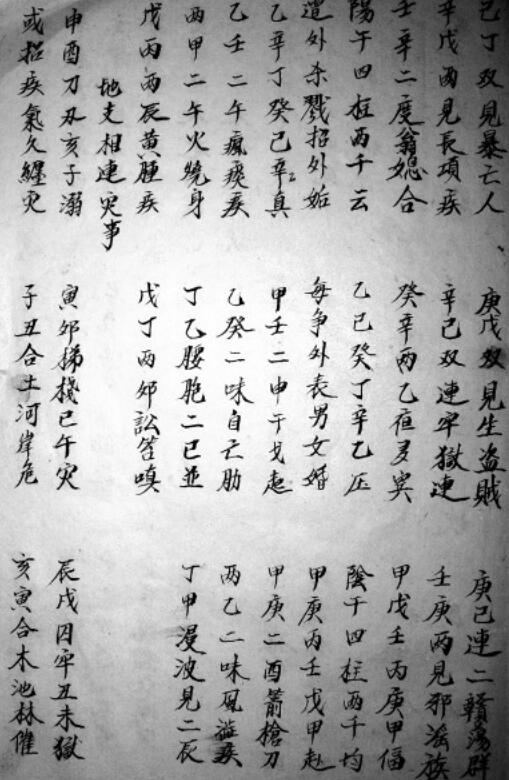 己丁双見暴亡人
庚戊双見生盗賊
庚己連二蕩群
辛戊两見長項疾
辛己双連牢獄連
壬庚两見邪滛族
壬辛二度翁媳合
癸辛两乙疸
甲戊壬丙庚甲偪
陽午四柱两千云
乙己癸丁辛乙压
陰干四柱两千均
遣外杀戮招外姤
每争外表男女婚
甲庚丙壬戊甲赴
乙辛丁癸己辛真
甲壬二申干戈起
甲庚二酉箭槍刀
乙壬二午瘋瘓疾
乙癸二味自亡肋
两乙二味風疾
两甲二午火燒身
丁乙腰胞二巳並
丁甲漫波見二辰
戊丙两辰黄腫疾
戊丁两卯訟笞嗔
地支相連灾事
申酉刀刃亥子溺
寅卯梯棧巳午灾
辰戌囚牢丑未獄
或招疾氣久纏灾
子丑合土河岸危
亥寅合木池林催